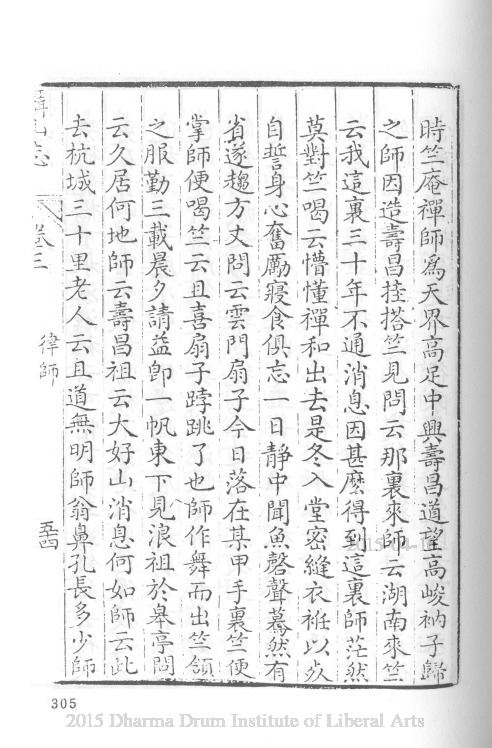 時竺庵禪師爲天界高足中興壽昌道望高峻衲子歸
之師因造壽昌挂搭竺見問云那裏來師云湖南來竺
云我這裏三十年不通消息因甚麼得到這裏師茫然
莫對竺喝云懵懂禪和出去是冬入堂密縫衣袵以必
自誓身心奮勵寢食俱忘一日靜中聞魚磬聲驀然有
省遂趨方丈問云雲門扇子今日落在某甲手裏竺便
掌師便喝竺云且喜扇子踍跳了也師作舞而出竺頷
之服勤三載晨夕請益卽一帆東下見浪祖於皋亭問
云久居何地師云壽昌祖云大好山消息何如師云此
去杭城三十里老人云且道無明師翁鼻孔長多少師
卷三
律師
五四
305
2015 Dharma Drum Institute of Liberal Arts